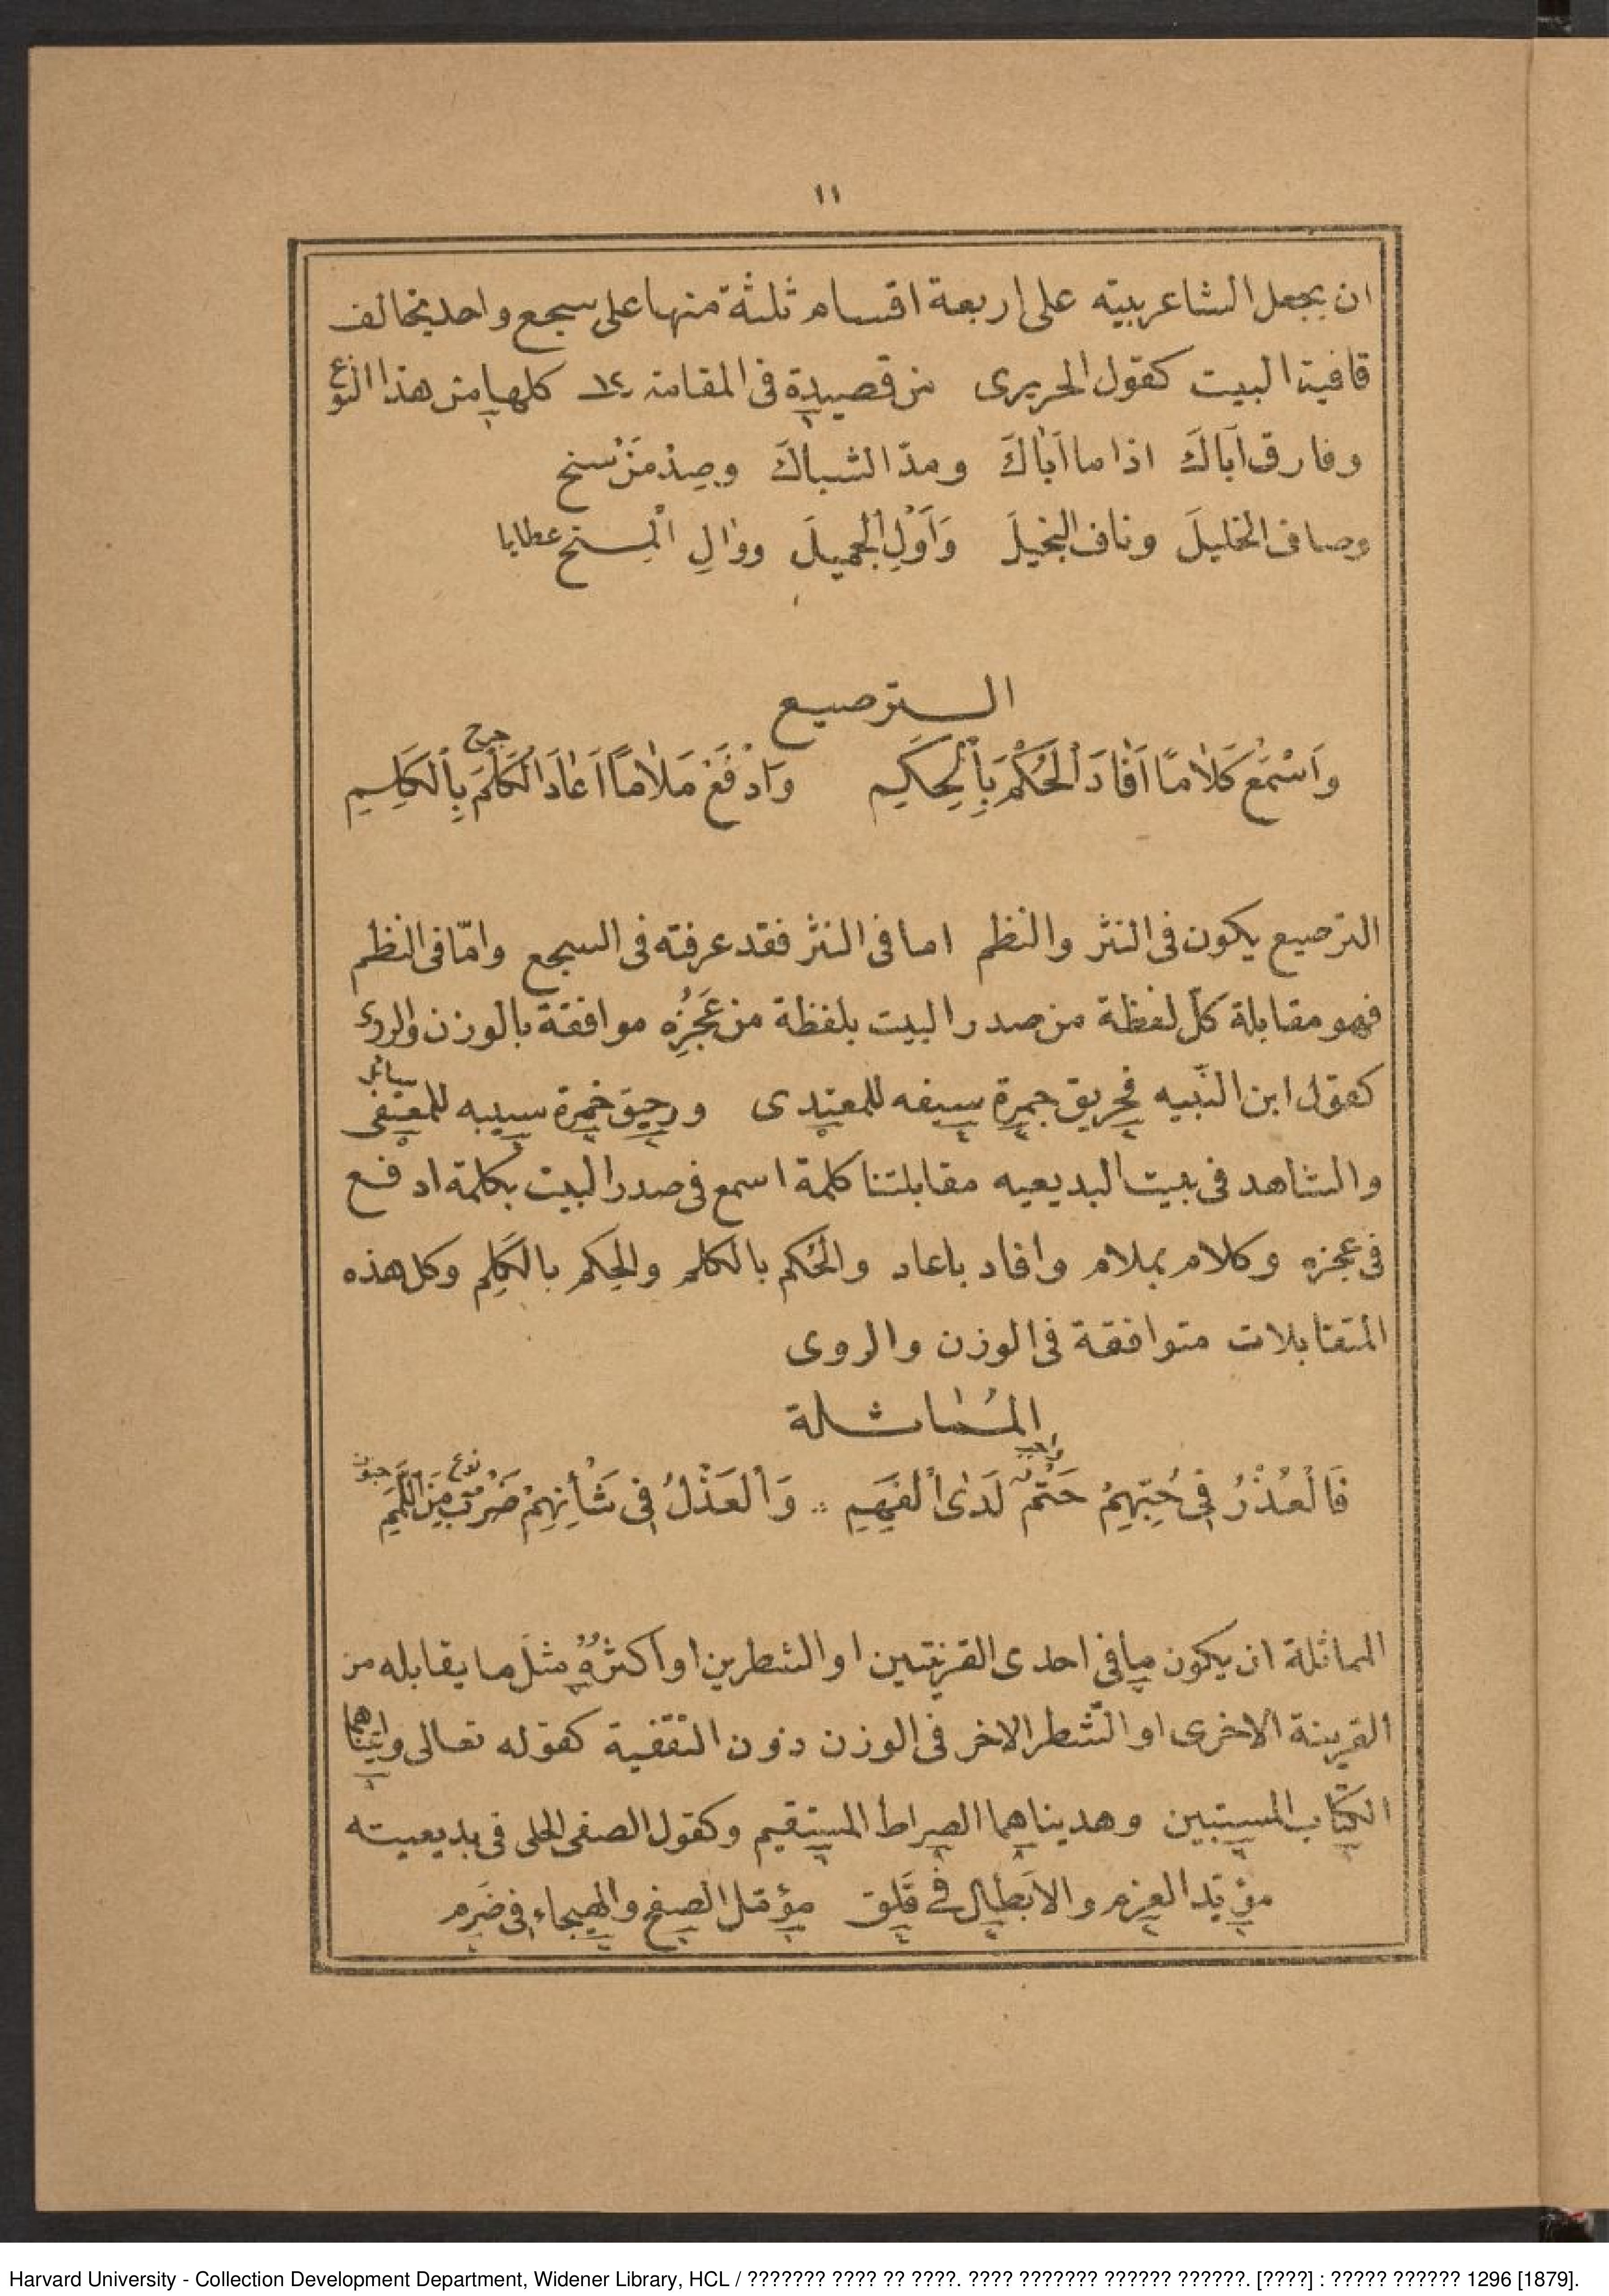 ١١
ان يجعل الشاعر بيته على اربعة اقسام ثلثة منها على سجع واحد يخالف
قافية البيت كقول الحريرى من قصيدة فى المقامة كلها من هذا النوع
وفارق اَباكَ اذا ما اَباكَ ومدّ الشباكَ وصِدْ مَنْ سنح
وصاف الخليلَ وناف البخيلَ وَاَوْلِ الجميلَ ووالِ الْمِنح عطايا
الترصيع
جرح
وَاَسْمَعْ كَلَامًا اَفَادَ الْحُكْمَ بِالْحِكَمِ وَادْفَعْ مَلَامًا اَعَادَ الْكَلْمَ بِالْكَلِمِ
الترصيع يكون فى النثر والنظم اما فى النثر فقد عرفته فى السجع وامّا فى النظم
فهو مقابلة كلّ لفظة من صدر البيت بلفظة من عَجُزِه موافقة بالوزن والروى
كقول ابن النّبيه فحريق جمرة سيفه للمعتدى ورحيق خمرة سيبه للمعتفى سائل
والشاهد فى بيت البديعيه مقابلتنا كلمة اسمع فى صدر البيت بكلمة ادفع
فى عجزه وكلام بملام وافاد باعاد والحُكم بالكلم والحِكم بالكَلِم وكل هذه
المتقابلات متوافقة فى الوزن والروى
المُماثلة
واجب نوع جنون
فَالْعُذْرُ فِى حُبِّهِمْ حَتْمٌ لَدَى الْفَهِمِ وَالْعَذْلُ فِى شَأْنِهِمْ ضَرْبٌ مِنَ اللَّمَمِ
المماثلة ان يكون ما فى احدى القرينتين او الشطرين او اكثرُهُ مثلَ ما يقابله من
القرينة الاخرى او الشّطر الاخر فى الوزن دون التقفية كقوله تعالى واتيناهما
الكتاب المستبين وهديناهما الصراط المستقيم وكقول الصفى الحلى فى بديعيته
مؤيّد العزم والابطال فى قَلِق مؤمّل الصفح والهيجاء فى ضَرَم
Harvard University - Collection Development Department, Widener Library, HCL / ??????? ???? ?? ????. ???? ??????? ?????? ??????. [????] : ????? ?????? 1296 [1879].